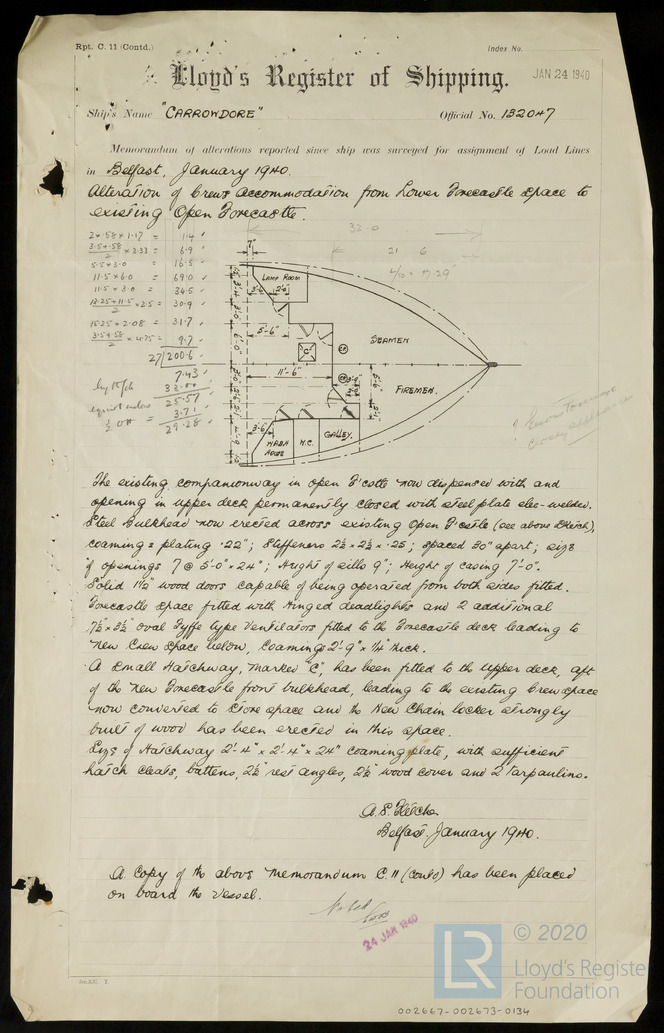 Rpt. C. 11 (Contd.)
Index No.
Lloyd's Register of Shipping.
JAN 24 1940
Ship's Name "CARROWDORE"
Official No. 132047
Memorandum of alterations reported since ship was surveyed for assignment of Load Lines
in Belfast, January 1940.
Alteration of Crews Accommodation from Lower Forecastle Space to
existing Open Forecastle.
24.58 x 1.17 = 1.4
3.5+.58/2 x 3.33 = 6.9
5.5 x 3.0 = 16.5
11.5 x 6.0 = 69.0
11.5 x 3.0 = 34.5
13.25+11.5/2 x 2.5 = 30.9
15.25 x 2.08 = 31.7
3.5+.58/2 x 4.75 = 9.7
27)200.6
7.43
33.00
25.57
3.71
29.28
33.0
21 6
7"
LAMP ROOM
3'-6"
2'-0"
5'-6"
"C"
11'-6"
SEAMEN
FIREMEN.
3'-6
WASH HOUSE
W.C.
GALLEY
The existing companionway in open F'castle now dispensed with and
opening in upper deck permanently closed with steel plate elec-welded.
Steel Bulkhead now erected across existing Open F'castle (see above sketch),
coaming & plating .22"; Stiffeners 2½ x 2½ x .25; spaced 30" apart; size
of openings 7 @ 5'-0" x 24"; Height of sills 9"; Height of casing 7'-0".
Solid 1½" wood doors capable of being operated from both sides fitted.
Forecastle space fitted with Hinged deadlights and 2 additional
7½" x 3½" oval Fyffe type Ventilators fitted to the Forecastle deck leading to
New Crew space below, Coamings 2'-9" x ¼" thick.
A small Hatchway, marked "C", has been fitted to the Upper deck, aft
of the New Forecastle front bulkhead, leading to the existing Crew space
now converted to Store space and the New Chain locker strongly
built of wood has been erected in this space.
Size of Hatchway 2'-4" x 2'-4" x 24" coaming plate, with sufficient
hatch cleats, battens, 2½" rest angles, 2½" wood cover and 2 tarpaulins.
A. S.
Belfast. January 1940.
A Copy of the above Memorandum C.11 (contd) has been placed
on board the Vessel.
Noted
24 JAN 1940
LR
© 2020
Lloyd's Registe
Foundation
002667-002673-0134